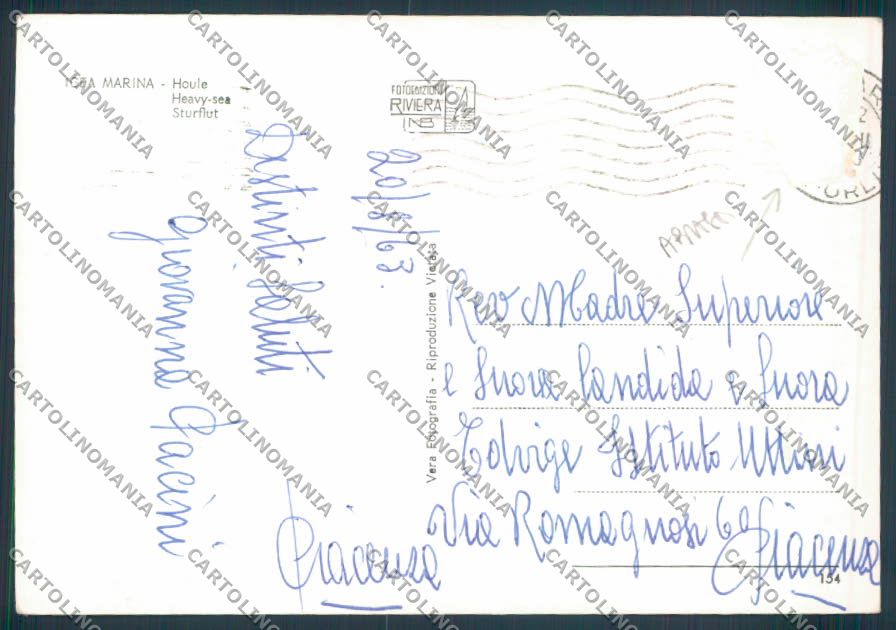 IGEA MARINA - Houle
Heavy-sea
Sturflut
FOTOEDIZIONI
RIVIERA
20/8/63.
Distinti Saluti
Giovanna
Piacenza
Vera Fotografia - Riproduzione Vietata
Rev Madre Superiore
e Suora Candida e Suora
Edvige Istituto
Via Romagnosi
Piacenza
154
CARTOLINOMANIA